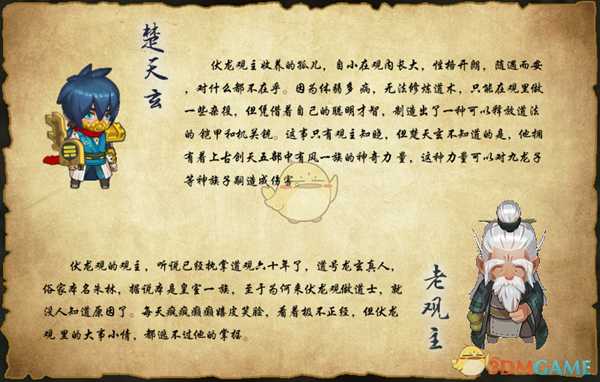 楚天玄
伏龙观主收养的孤儿，自小在观内长大，性格开朗，随遇而安
，对什么都不在乎。因为体弱多 病，无法修炼道术，只能在观里做
一些杂役，但凭借着自己的聪明才智，制造出了一种可以释放道法
的 铠甲和机关铳。这事只有观主知晓，但楚天玄不知道的是，他拥
有着上古创天五部中有风一族的神奇力 量，这种力量可以对九龙子
等神族子嗣造成伤害。
老观主
伏龙观的观主，听说已经执掌道观六十年了，道号龙玄真人，
俗家本名朱林，据说本是皇室一族，至于为何来伏龙观做道士，就
没人知道原因了。每天疯疯癫癫嬉皮笑脸，看着极不正经，但伏龙
观 里的大事小情，都逃不过他的掌握。
3DMGAME